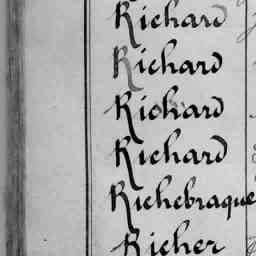 Richard
Richard
Richard
Richard
Richebraque
Richer